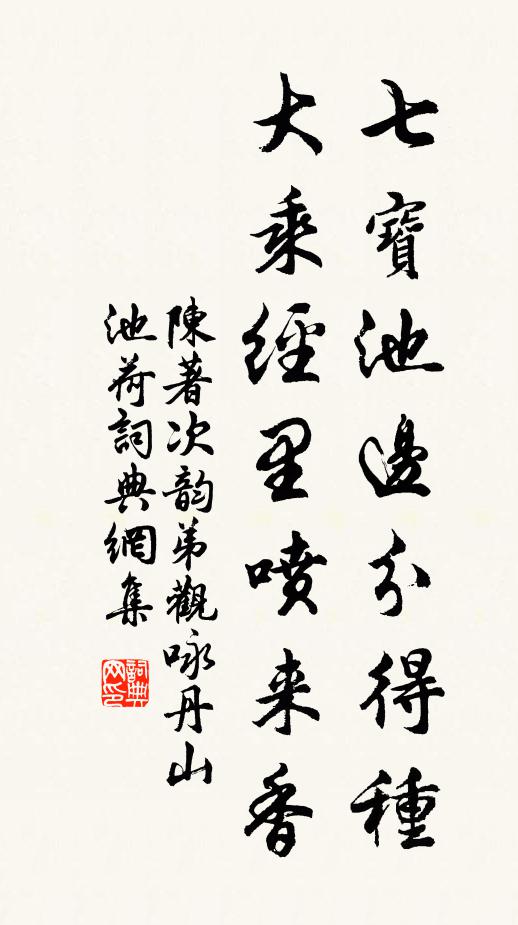 七寶池邊分得種
大乘經里噴来香
陳著次韵弟觀咏丹山
池荷詞典網集
詞典网印